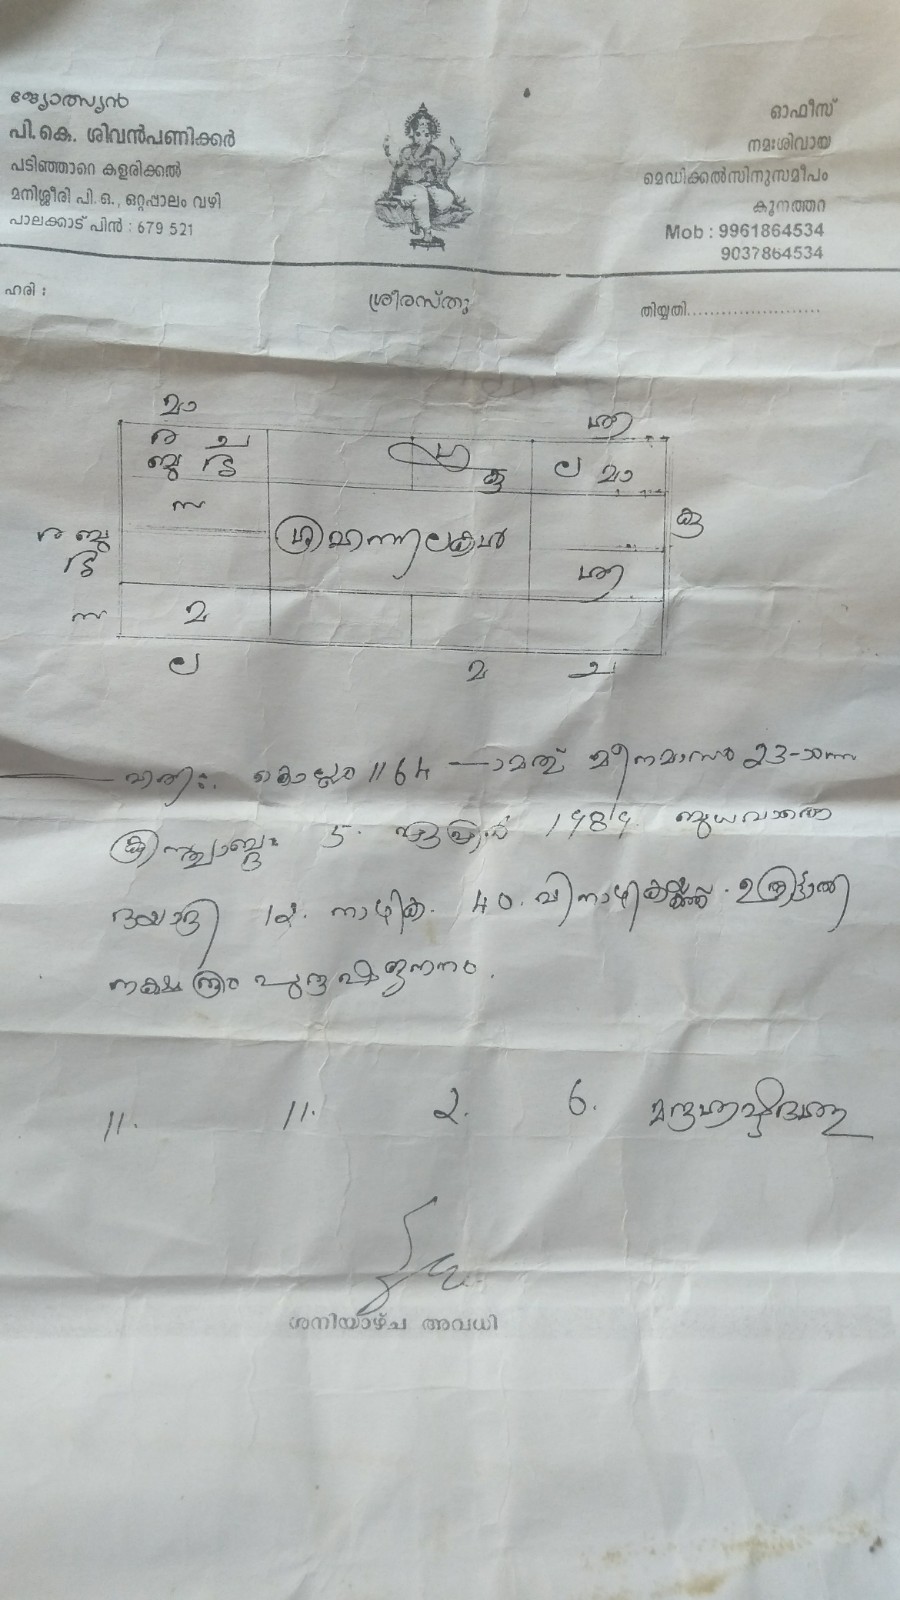 ജ്യോത്സ്യൻ
പി.കെ. ശിവൻപണിക്കർ
പടിഞ്ഞാറെ കളരിക്കൽ
മനിശ്ശീരി പി.ഒ., ഒറ്റപ്പാലം വഴി
പാലക്കാട് പിൻ : 679 521
ഓഫീസ്
നമഃശിവായ
മെഡിക്കൽസിനുസമീപം
കൂനത്തറ
Mob : 9961864534
9037864534
ഹരി :
ശ്രീരസ്തു
തിയ്യതി.......................
മാ
ശു
ര ച
ബു
ല മാ
കു
സ
ര ബു
കു
ശു
സ
മ
ല മ ച
കൊല്ലം 1164 -ാമത് മീനമാസം 23-
5. ഏപ്രിൽ 1989. ബുധവാരെ
ദയാദി 12. നാഴിക. 40. ഉത്രട്ടാതി
നക്ഷത്രം പുരുഷജനനം.
11. 11. 2. 6.
ശനിയാഴ്ച അവധി